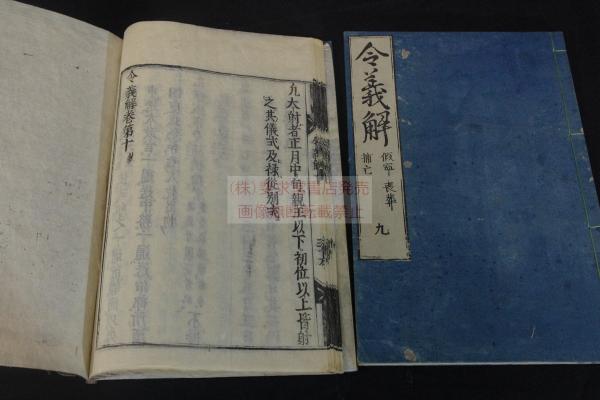 九大射者正月中旬親王以下初位以上皆射
之其儀式及禄従別式
令義解巻第十
令義解
假寧 喪葬
捕亡
九
画像無断転載禁止